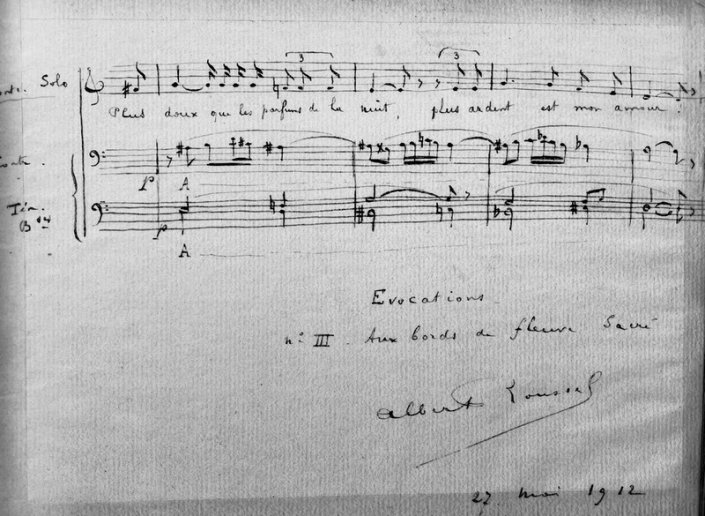 Solo
Plus doux que les parfums de la nuit, plus ardent est mon amour!
p A
Tén.
p
A
Evocations
n° III. Aux bords du fleuve Sacré
Albert Roussel
27 mai 1912